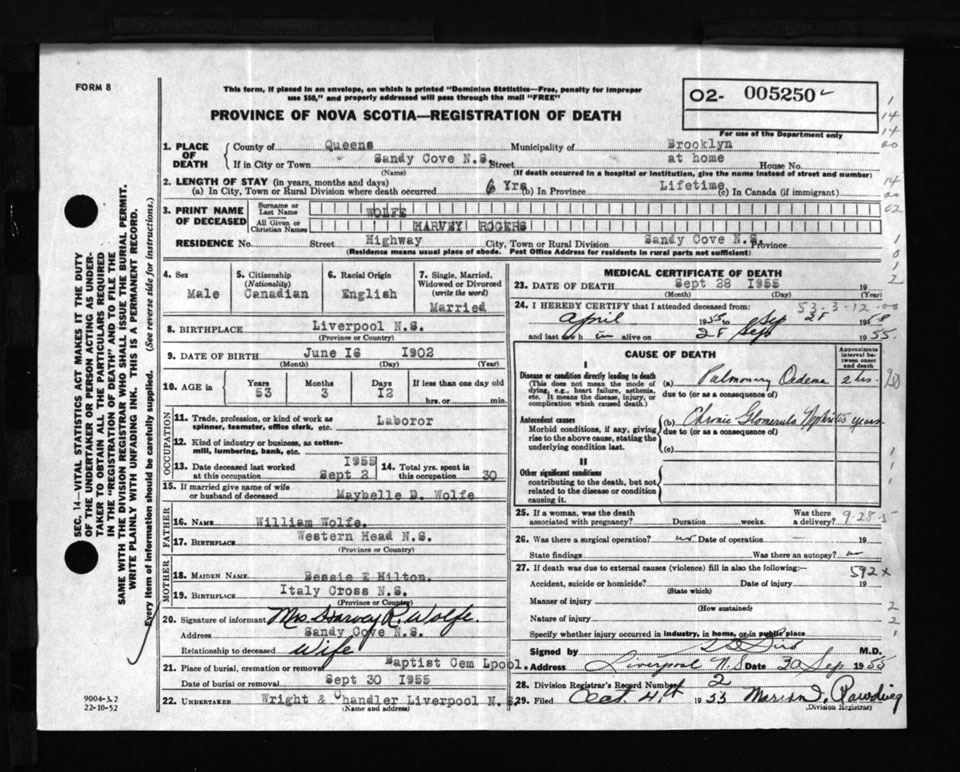 FORM 8
This form, if placed in an envelope, on which is printed "Dominion Statistics—Free, penalty for improper
use $50," and properly addressed will pass through the mail "FREE"
O2- 005250
For use of the Department only
PROVINCE OF NOVA SCOTIA—REGISTRATION OF DEATH
1. PLACE OF DEATH
County of Queens Municipality of Brooklyn
If in City or Town Sandy Cove N.S. Street at home House No.
(Name) (If death occurred in a hospital or institution, give the name instead of street and number)
2. LENGTH OF STAY (in years, months and days)
(a) In City, Town or Rural Division where death occurred 6 Yrs (b) In Province Lifetime (c) In Canada (if immigrant)
3. PRINT NAME OF DECEASED
Surname or Last Name WOLFE
All Given or Christian Names HARVEY ROGERS
RESIDENCE No. Street Highway City, Town or Rural Division Sandy Cove N.S. Province
(Residence means usual place of abode. Post Office Address for residents in rural parts not sufficient)
4. Sex Male
5. Citizenship (Nationality) Canadian
6. Racial Origin English
7. Single, Married, Widowed or Divorced (write the word) Married
8. BIRTHPLACE Liverpool N.S.
(Province or Country)
9. DATE OF BIRTH June 16 1902
(Month) (Day) (Year)
10. AGE in Years 53 Months 3 Days 12 If less than one day old
hrs. or min.
OCCUPATION
11. Trade, profession, or kind of work as spinner, teamster, office clerk, etc. Laboror
12. Kind of industry or business, as cotton-mill, lumbering, bank, etc.
13. Date deceased last worked at this occupation 1955 Sept 2
14. Total yrs. spent in this occupation 30
15. If married give name of wife or husband of deceased Maybelle D. Wolfe
FATHER
16. NAME William Wolfe.
17. BIRTHPLACE Western Head N.S.
(Province or Country)
MOTHER
18. MAIDEN NAME Bessie E Hilton.
19. BIRTHPLACE Italy Cross N.S.
(Province or Country)
20. Signature of informant Mrs Harvey R. Wolfe.
Address Sandy Cove N.S.
Relationship to deceased Wife
21. Place of burial, cremation or removal Baptist Cem Lpool.
Date of burial or removal Sept 30 1955
22. UNDERTAKER Wright & Chandler Liverpool N.S.
(Name and address)
MEDICAL CERTIFICATE OF DEATH
23. DATE OF DEATH Sept 28 1955 19
(Month) (Day) (Year)
24. I HEREBY CERTIFY that I attended deceased from: 53-3-12
April 1955 to Sep 28 19
and last saw h im alive on 28 Sept 1955
CAUSE OF DEATH
Approximate interval between onset and death
I
Disease or condition directly leading to death
(This does not mean the mode of dying, e.g., heart failure, asthenia, etc. It means the disease, injury, or complication which caused death.)
(a) Pulmonary Oedema 2 hrs.
due to (or as a consequence of)
Antecedent causes
Morbid conditions, if any, giving rise to the above cause, stating the underlying condition last.
(b) Chronic Glomerulo Nephritis years
due to (or as a consequence of)
(c)
II
Other significant conditions
contributing to the death, but not related to the disease or condition causing it.
25. If a woman, was the death associated with pregnancy? Duration weeks. Was there a delivery? 9-28-5
26. Was there a surgical operation? no Date of operation — 19
State findings Was there an autopsy? no
27. If death was due to external causes (violence) fill in also the following:— 592 x
Accident, suicide or homicide? Date of injury 19
(State which)
Manner of injury
(How sustained)
Nature of injury
Specify whether injury occurred in industry, in home, or in public place
Signed by M.D.
Address Liverpool N.S Date 30 Sep. 1955
28. Division Registrar's Record Number 2
29. Filed Oct. 4th 1955
(Division Registrar)
SEC. 14—VITAL STATISTICS ACT MAKES IT THE DUTY
OF THE UNDERTAKER OR PERSON ACTING AS UNDER-
TAKER TO OBTAIN ALL THE PARTICULARS REQUIRED
IN THE "REGISTRATION OF DEATH" AND TO FILE THE
SAME WITH THE DIVISION REGISTRAR WHO SHALL ISSUE THE BURIAL PERMIT.
WRITE PLAINLY WITH UNFADING INK. THIS IS A PERMANENT RECORD.
Every item of information should be carefully supplied. (See reverse side for instructions.)
9004-3.2
22-10-52